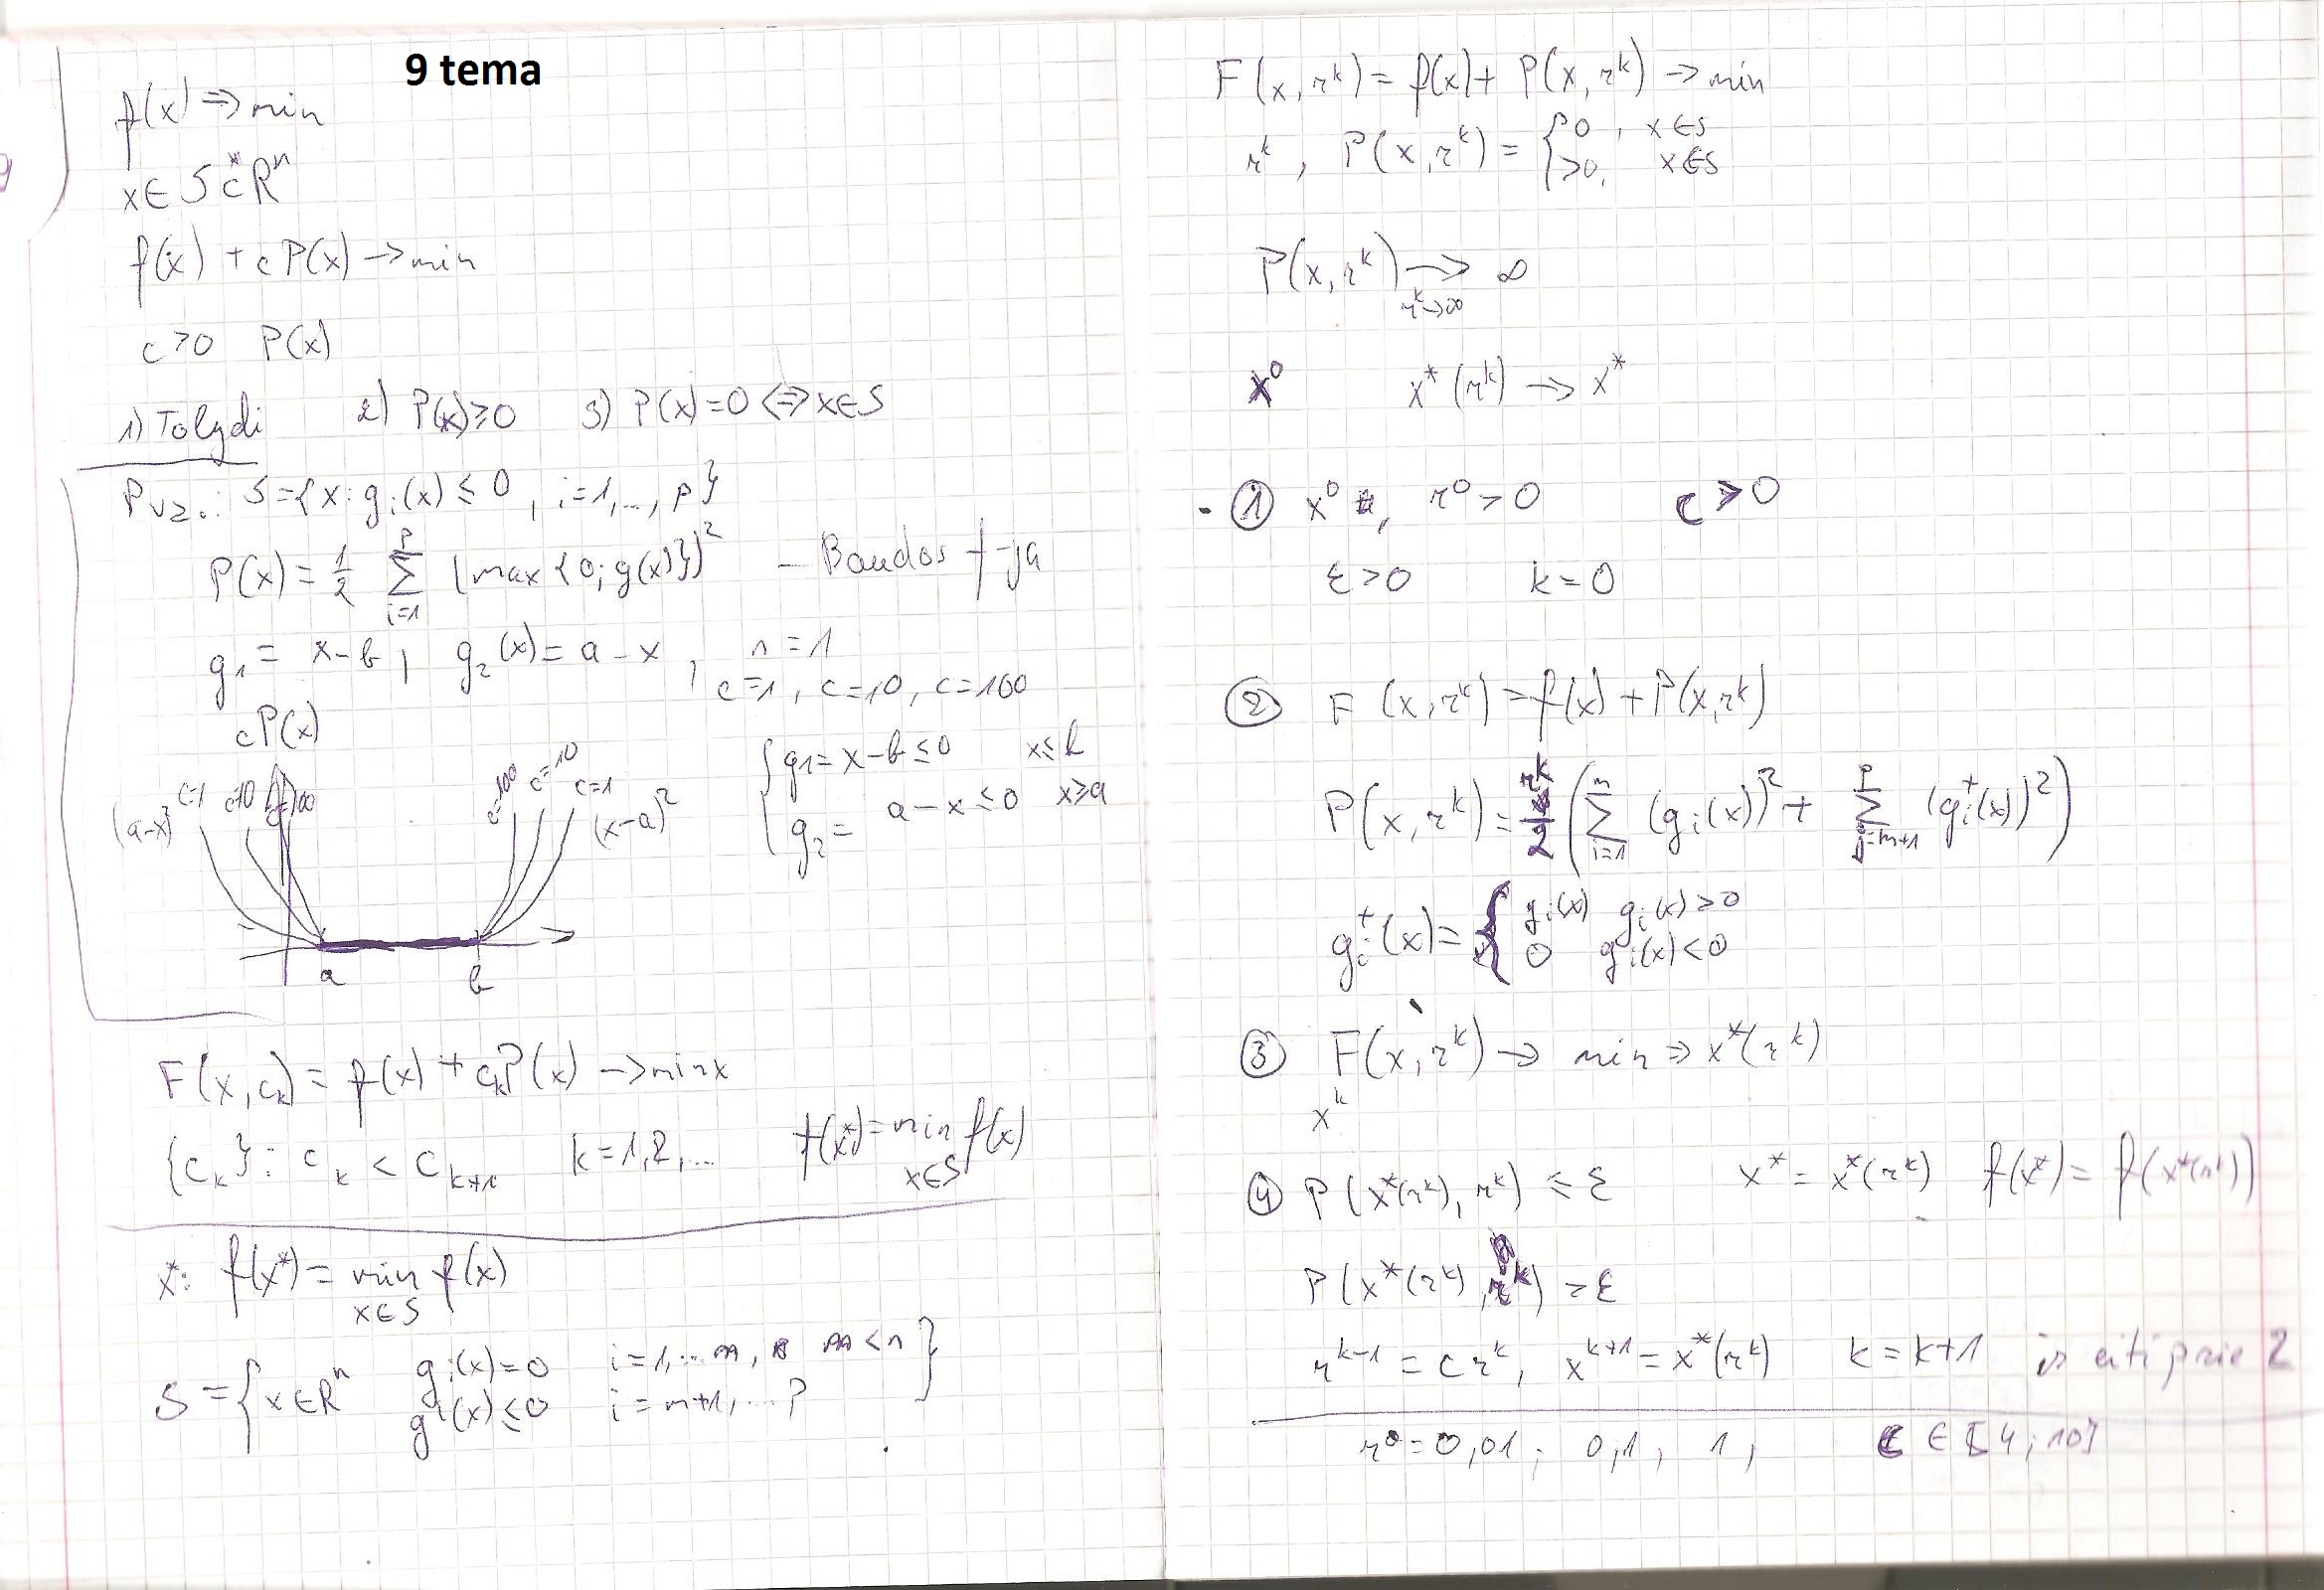 9 tema
f(x) => min
x ∈ S ⊂ Rⁿ
f(x) + cP(x) -> min
c>0 P(x)
1) Tolydi 2) P(x)≥0 3) P(x)=0 <=> x∈S
Pvz.: S={x: gᵢ(x) ≤ 0, i=1,..., p}
P(x) = 1/2 Σ_{i=1}^{p} (max{0; g(x)})² - Baudos f-ja
g₁ = x-b, g₂(x) = a-x, n=1
c=1, c=10, c=100
cP(x)
(a-x)² c=1 c=10 c=100
c=100 c=10 c=1 (x-a)²
{ g₁ = x-b ≤ 0 x≤b
g₂ = a-x ≤ 0 x≥a
a b
F(x, cₖ) = f(x) + cₖP(x) -> min x
{cₖ}: cₖ < cₖ₊₁ k=1,2,... f(x*) = min_{x∈S} f(x)
x*: f(x*) = min_{x∈S} f(x)
S = { x∈Rⁿ gᵢ(x)=0 i=1,...m, m<n }
gᵢ(x)≤0 i=m+1,...p
F(x, rᵏ) = f(x) + P(x, rᵏ) -> min
rᵏ, P(x, rᵏ) = { 0, x∈S
>0, x∈S
P(x, rᵏ) -> ∞
rᵏ->∞
x⁰ x*(rᵏ) -> x*
① x⁰, r⁰>0 C>0
ε>0 k=0
② F(x, rᵏ) = f(x) + P(x, rᵏ)
P(x, rᵏ) = rᵏ/2 (Σ_{i=1}^{m} (gᵢ(x))² + Σ_{j=m+1}^{p} (gᵢ⁺(x))²)
gᵢ⁺(x) = { gᵢ(x) gᵢ(x)>0
0 gᵢ(x)<0
③ F(x, rᵏ) -> min => x*(rᵏ)
xᵏ
④ P(x*(rᵏ), rᵏ) ≤ ε x* = x*(rᵏ) f(x*) = f(x*(rᵏ))
P(x*(rᵏ), rᵏ) > ε
rᵏ⁻¹ = C rᵏ, xᵏ⁺¹ = x*(rᵏ) k = k+1 ir eiti prie 2
r⁰ = 0,01; 0,1, 1, C ∈ [4; 10]